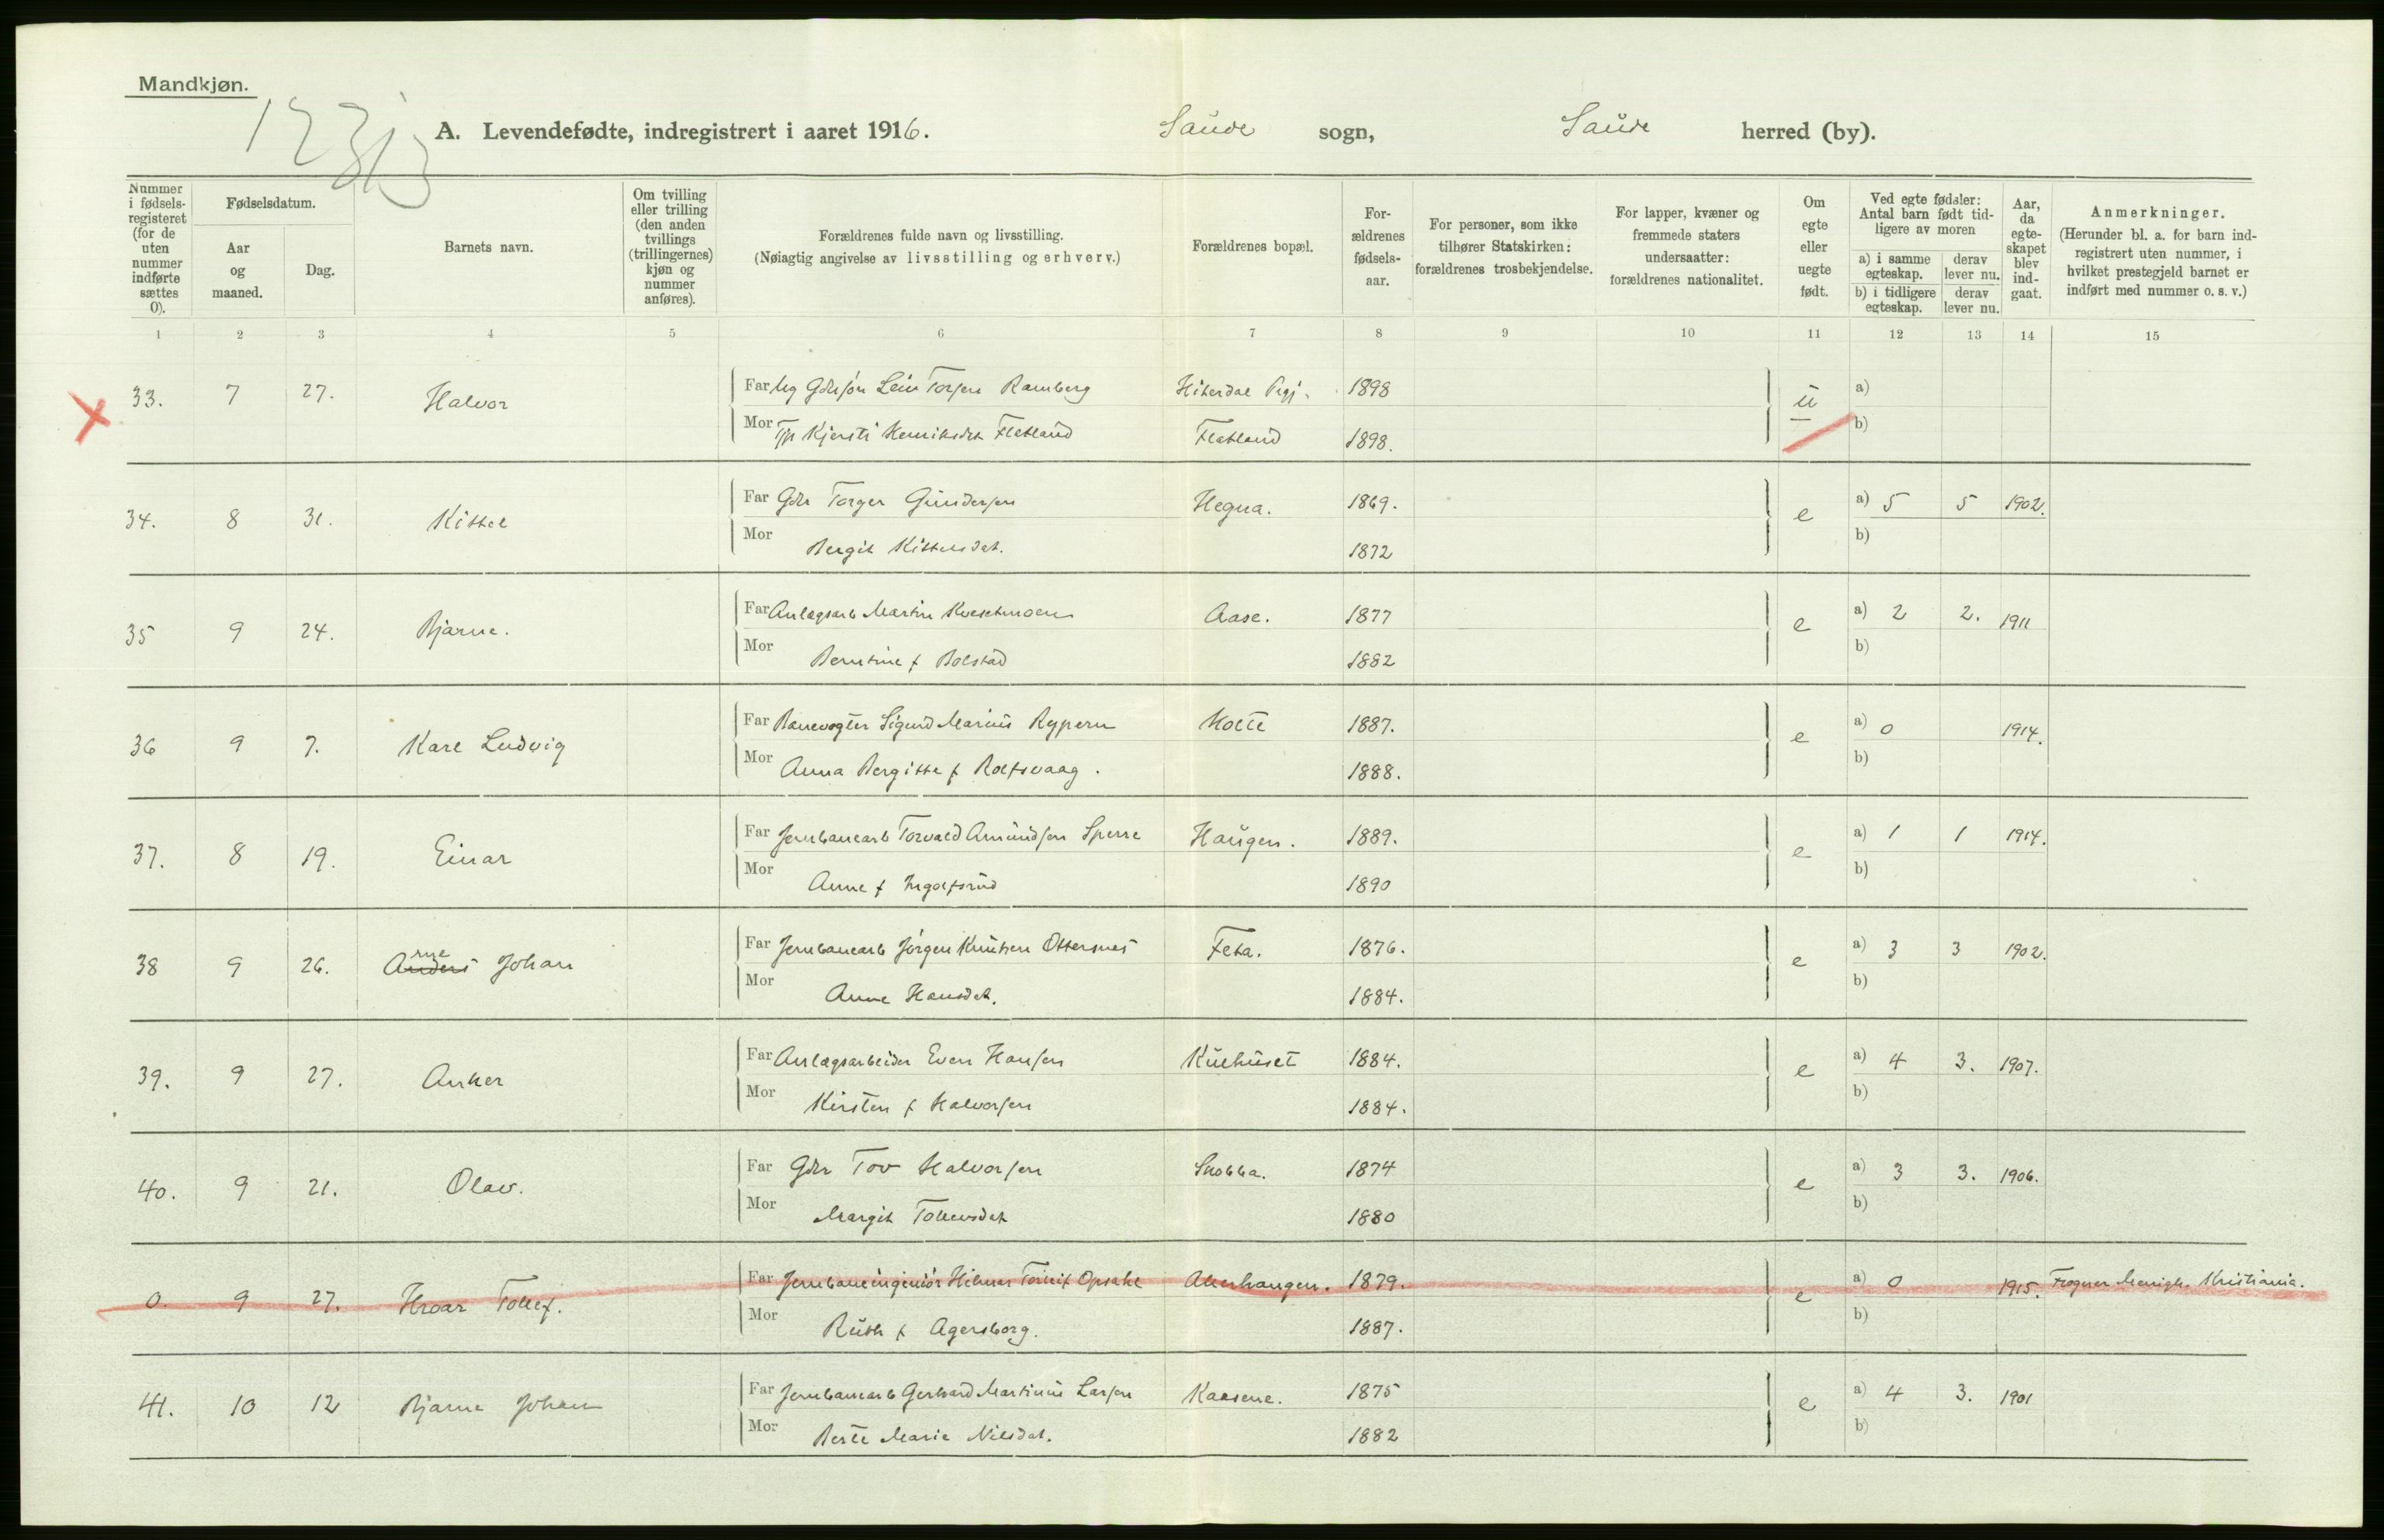 Mandkjøn.
A. Levendefødte, indregistrert i aaret 1916. Saude sogn, Saude herred (by).
Nummer i fødsels-registeret (for de uten nummer indførte sættes 0).
Fødselsdatum.
Aar og maaned.
Dag.
Barnets navn.
Om tvilling eller trilling (den anden tvillings (trillingernes) kjøn og nummer anføres).
Forældrenes fulde navn og livsstilling.
(Nøiagtig angivelse av livsstilling og erhverv.)
Forældrenes bopæl.
For-ældrenes fødsels-aar.
For personer, som ikke tilhører Statskirken: forældrenes trosbekjendelse.
For lapper, kvæner og fremmede staters undersaatter: forældrenes nationalitet.
Om egte eller uegte født.
Ved egte fødsler: Antal barn født tid-ligere av moren
a) i samme egteskap. derav lever nu.
b) i tidligere egteskap. derav lever nu.
Aar, da egte-skapet blev ind-gaat.
Anmerkninger.
(Herunder bl. a. for barn ind-registrert uten nummer, i hvilket prestegjeld barnet er indført med nummer o. s. v.)
1 2 3 4 5 6 7 8 9 10 11 12 13 14 15
33. 7 27. Halvor Far Ug Gdrsøn Leiv Torjsen Ramberg Hiterdal Prgj. 1898 u a)
Mor Tp Kjersti Henriksdat Flatland Flatland 1898. b)
34. 8 31. Kittel Far Gdr Torger Gundersen Hegna. 1869. e a) 5 5 1902.
Mor Bergit Kittelsdat. 1872 b)
35 9 24. Bjarne. Far Anlægsarb Martin Aase. 1877 e a) 2 2. 1911
Mor Berntine f Bolstad 1882 b)
36 9 7. Karl Ludvig Far Banevogter Sigurd Marius Rypern Holte 1887. e a) 0 1914.
Mor Anna Bergitte f Rolfsvaag. 1888. b)
37. 8 19. Einar Far Jernbanearb Torvald Amundsen Sperre Haugen. 1889. e a) 1 1 1914.
Mor Anne f Ingolfsrud 1890 b)
38 9 26. Anders rne Johan Far Jernbanearb Jørgen Knutsen Ottersnes Feta. 1876. e a) 3 3 1902.
Mor Anne Hansdat. 1884. b)
39. 9 27. Anker Far Anlægsarbeider Even Hansen Kulhuset 1884. e a) 4 3. 1907.
Mor Kirsten f Halvorsen 1884. b)
40. 9 21. Olav. Far Gdr Tov Halvorsen Snobba. 1874 e a) 3 3. 1906.
Mor Margit Tollevsdat 1880 b)
0. 9 27. Hroar Tollef. Far Jernbaneingeniør Hilmar Opsahl Akerhaugen. 1879. e a) 0 1915. Frogner Menigh. Kristiania.
Mor Ruth f Agersborg. 1887. b)
41. 10 12 Bjarne Johan Far Jernbanearb Gerhard Martinius Larsen Kaasene. 1875 e a) 4 3. 1901
Mor Berte Marie Nilsdat. 1882 b)